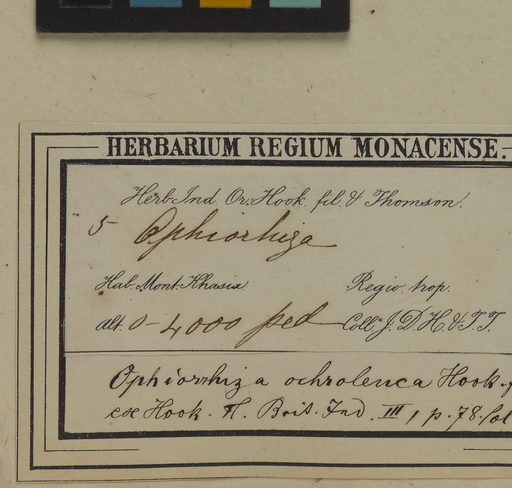 HERBARIUM REGIUM MONACENSE.
Herb. Ind. Or. Hook. fil. & Thomson.
5 Ophiorhiza
Hab. Mont. Khasia Regio trop.
alt. 0-4000 ped Coll. J. D. H. & T. T.
Ophiorrhiza ochroleuca Hook.
ex Hook. Fl. Brit. Ind. III, p. 78.